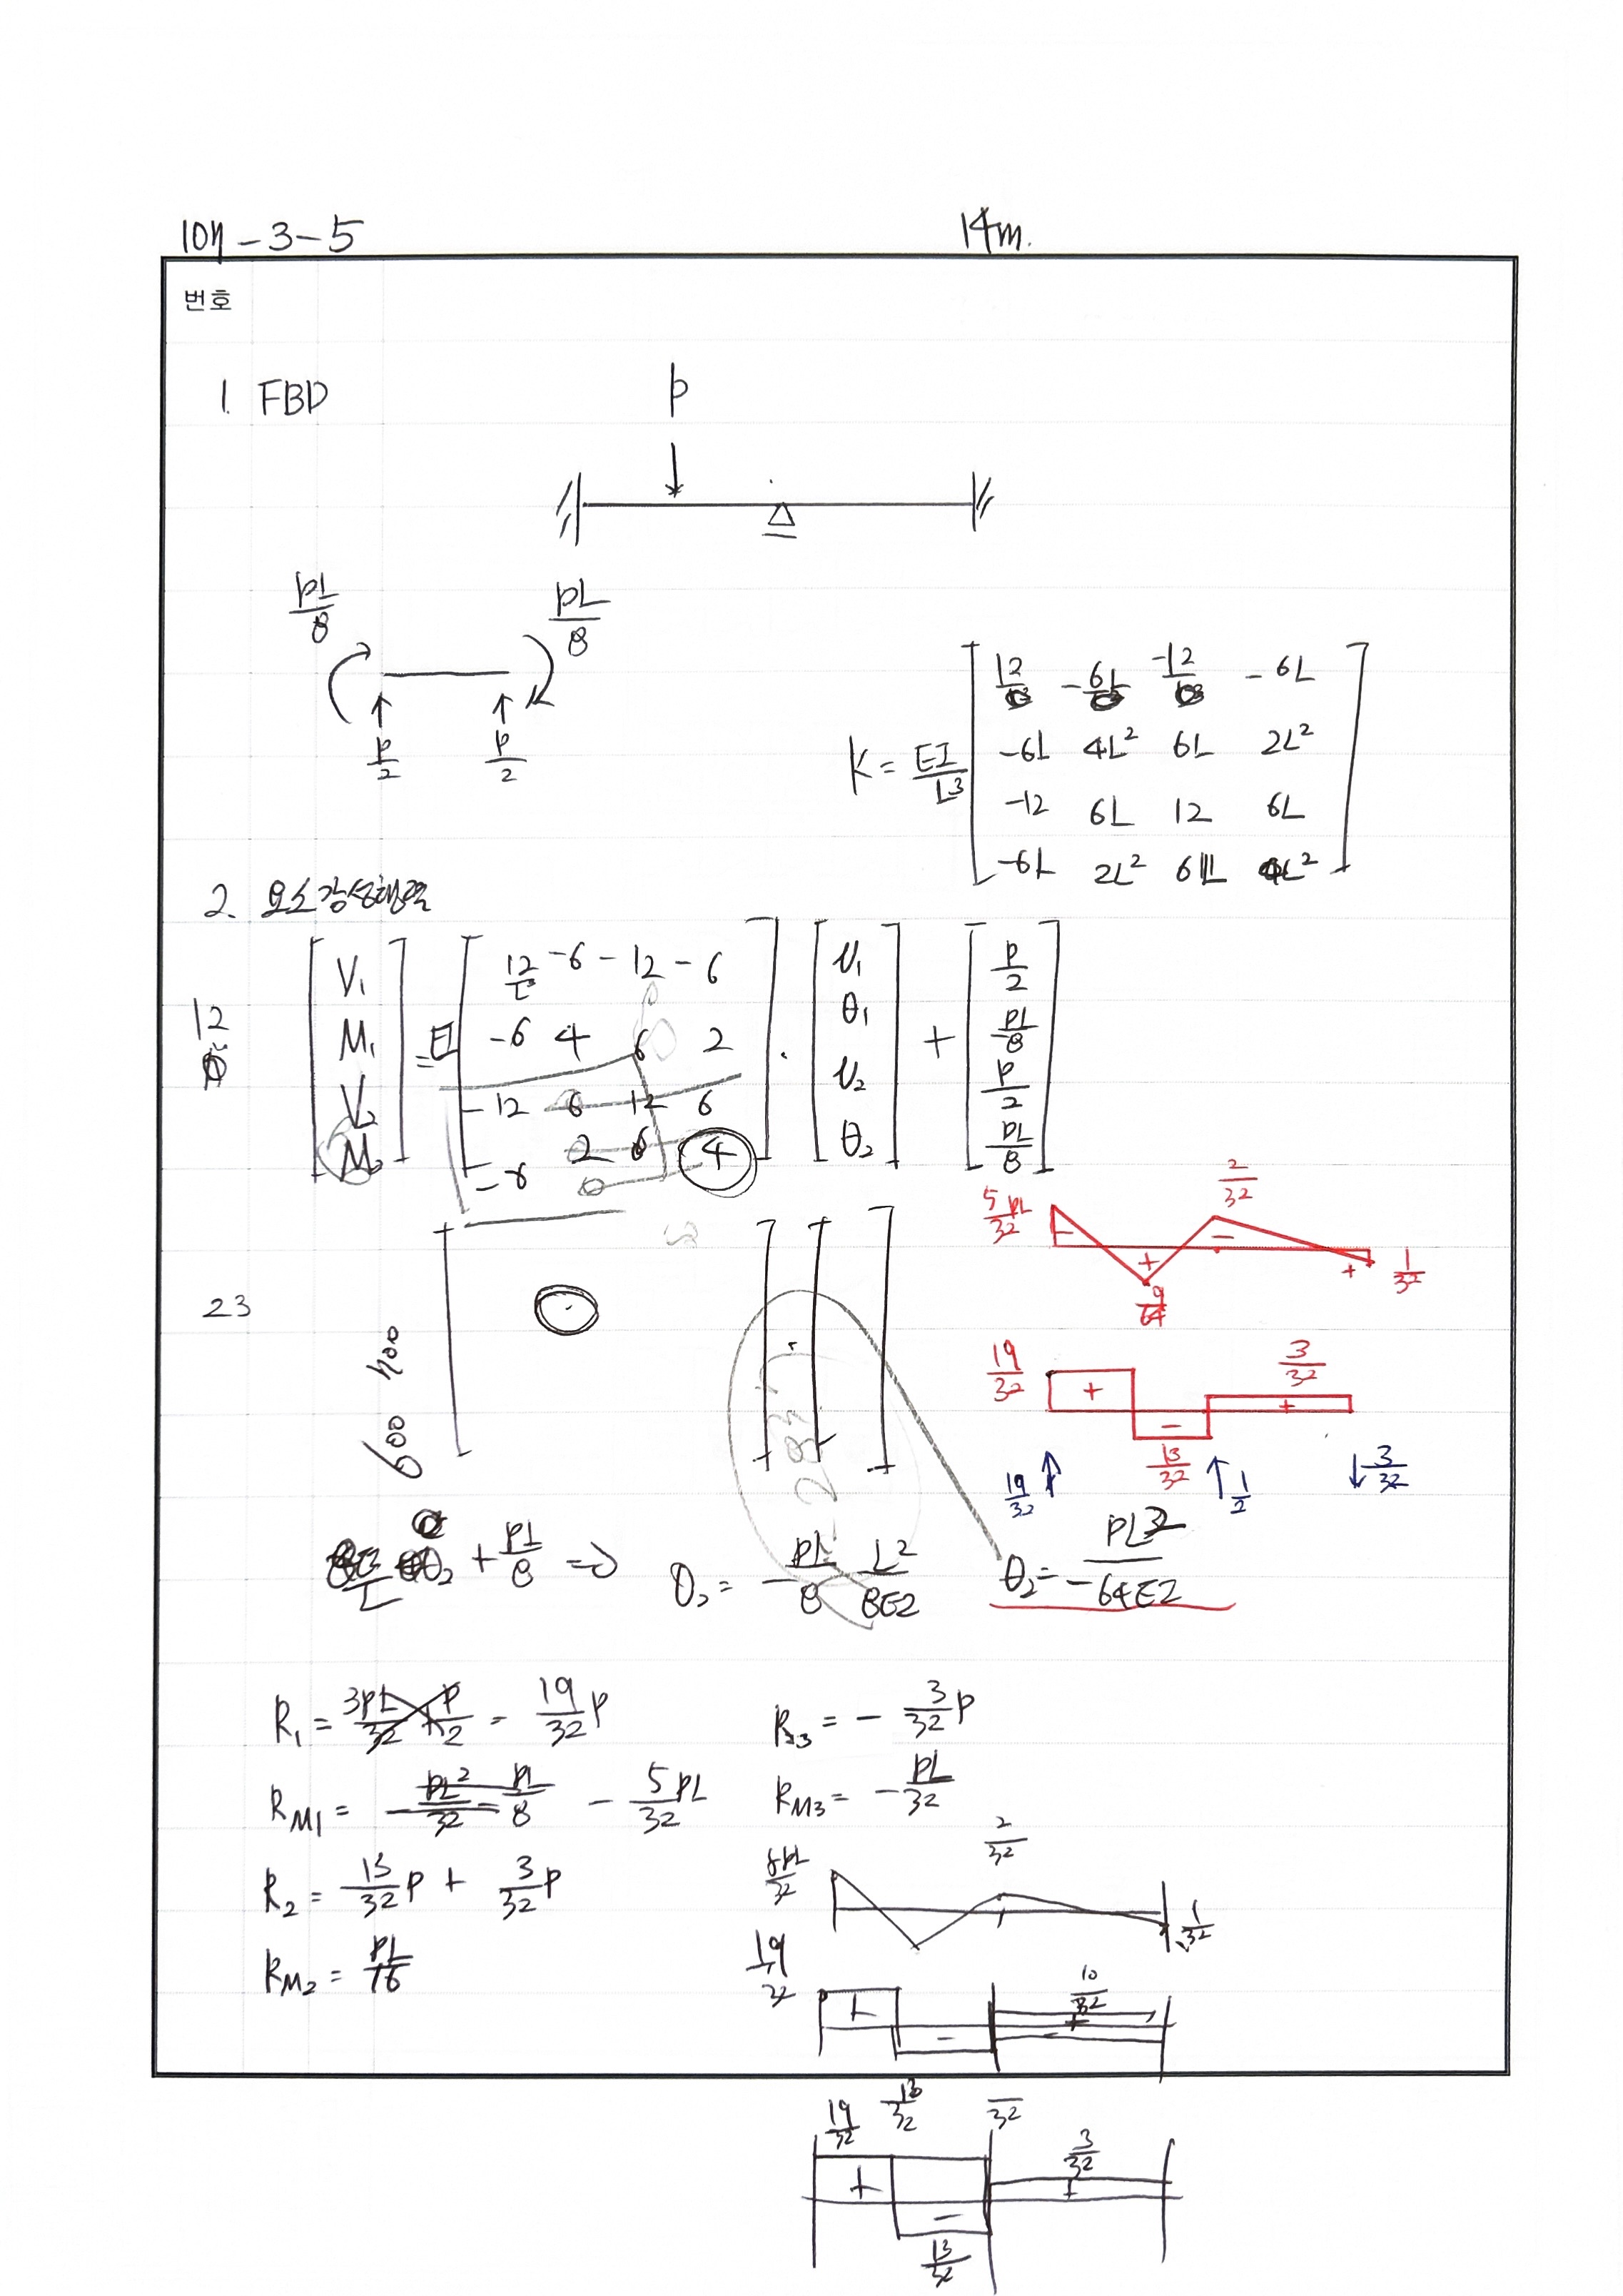 107-3-5 14m.
번호
1. FBD
P
PL/8 PL/8
P/2 P/2
K = EI/L³ [ 12 -6L -12 -6L
-6L 4L² 6L 2L²
-12 6L 12 6L
-6L 2L² 6L 4L² ]
2. 요소강성행렬
12
[ V₁ M₁ V₂ M₂ ] = EI [ 12/L³ -6 -12 -6
-6 4 6 2
-12 6 12 6
-6 2 6 4 ] · [ V₁ θ₁ V₂ θ₂ ] + [ P/2 PL/8 P/2 PL/8 ]
5PL/32 - + 9/64 2/32 - + 1/32
23
600
19/32 + - 13/32 3/32 +
19/32 ↑ ↑ 1/2 ↓ 3/32
θ₂ + PL/8 ⇒ θ₂ = - PL/8 L²/8EI θ₂ = PL²/-64EI
R₁ = 3PL/32 + P/2 = 19/32 P R₃ = - 3/32 P
R_M1 = - PL²/32 - PL/8 - 5PL/32 R_M3 = - PL/32
R₂ = 13/32 P + 3/32 P
R_M2 = PL/16
2/32
1/32
19/32 + - 10/32 +
19/32 13/32
+ - 3/32 +
13/32